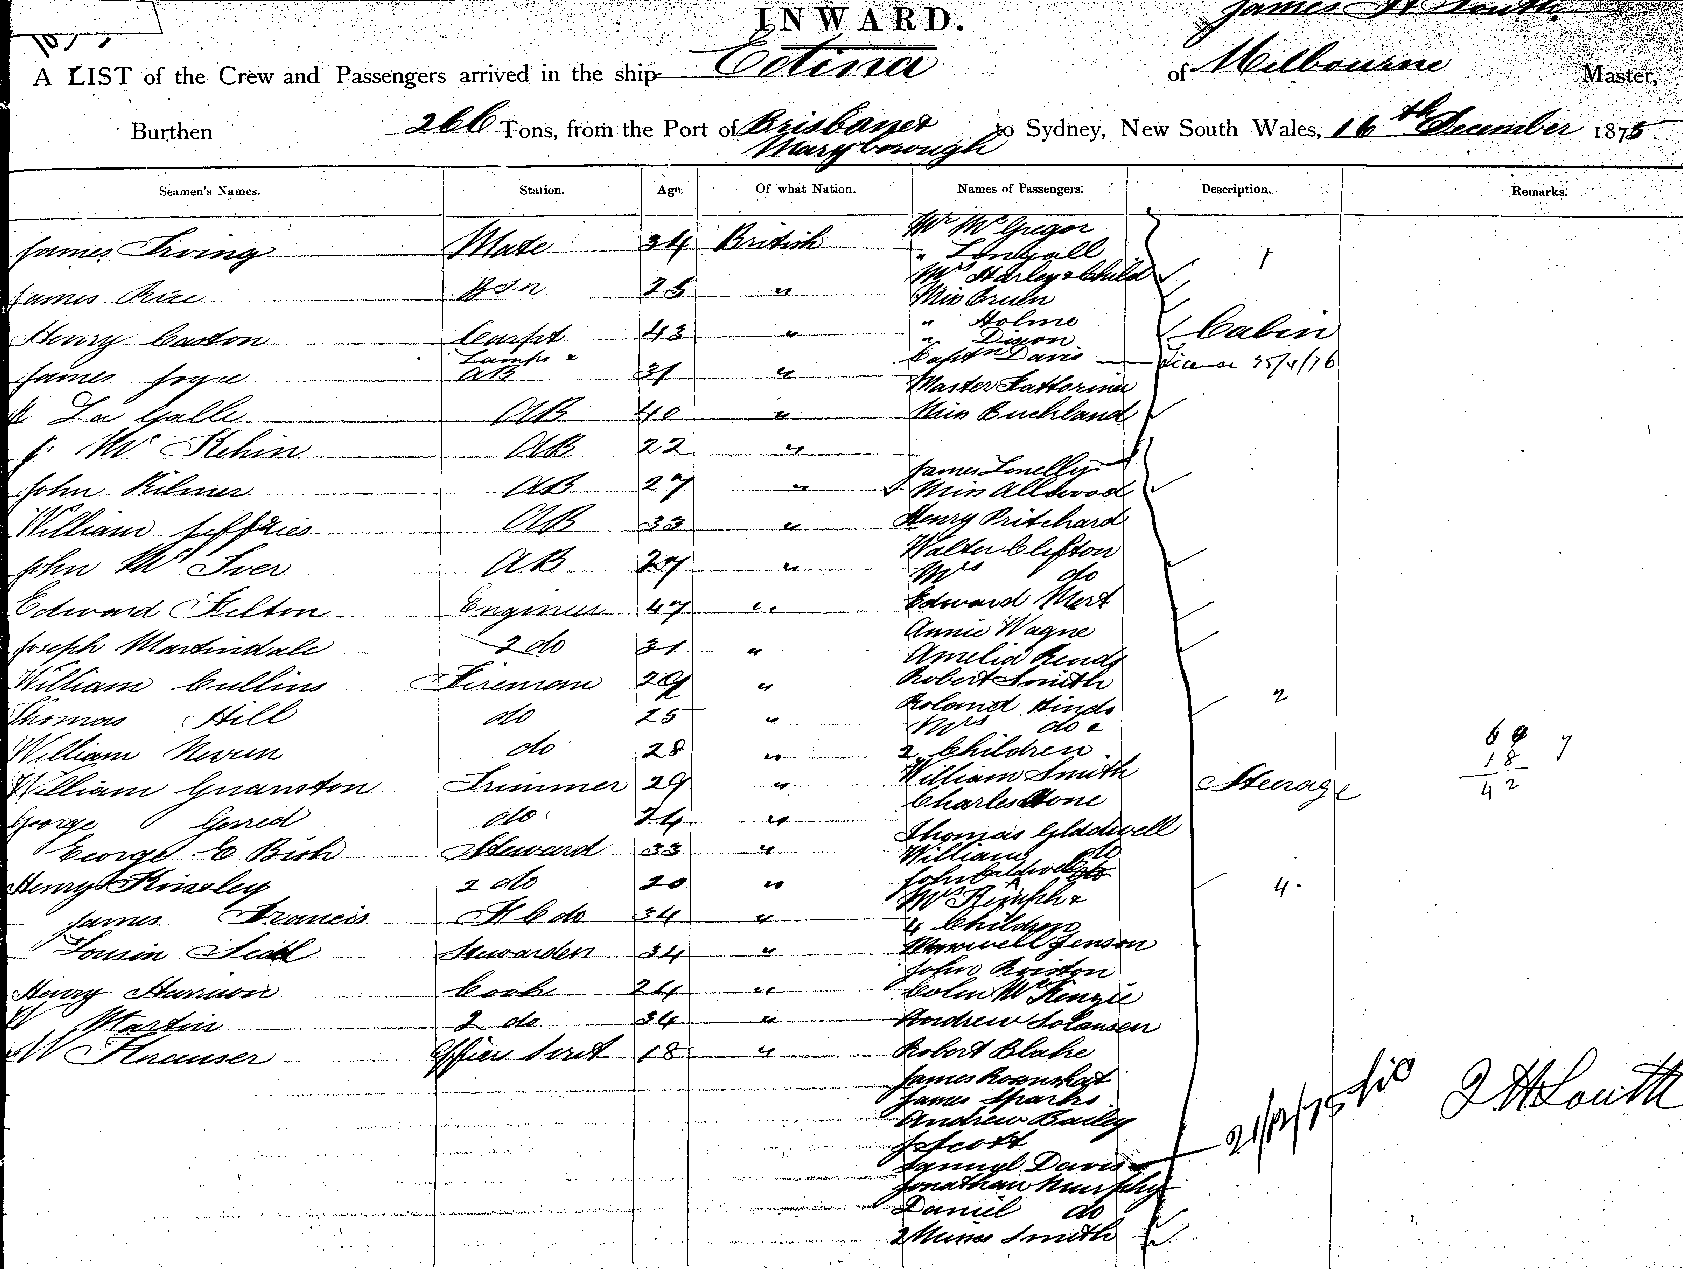 INWARD.
James H South
A LIST of the Crew and Passengers arrived in the ship Edina of Melbourne Master,
Burthen 266 Tons, from the Port of Brisbane & Maryborough to Sydney, New South Wales, 16th December 1875
Seamen's Names. Station. Age. Of what Nation. Names of Passengers. Description. Remarks.
James Irving Mate 34 British Mr McGregor
" Longall 1
James Rice Bsn 25 " Mrs Harley & Child
Miss Bruen
Henry Caston Carpt 43 " " Holme Cabin
" Dixon
James Joyce Lamps & AB 31 " Captn Davis 25/4/76
Master
La Galle AB 40 " Miss Buckland
J. Mc AB 22 "
James
John Kilmer AB 27 " Miss Allwood
William Jeffries AB 33 " Henry Pritchard
John McIver AB 27 " Walter Clifton
Mrs do
Edward Felton Engineer 47 " Edward Mert
Joseph Martindale 2 do 31 " Annie Wagne
Amelia
William Cullins Fireman 29 " Robert Smith 2
Thomas Hill do 25 " Roland Hinds
Mrs do &
William Nevin do 28 " 2 Children
William Granston Trimmer 29 " William Smith Steerage
Charles Hone
George Gerred do 24 "
George E Bish Steward 33 " Thomas Gladwell
William do
Henry Kinsley 2 do 20 " John 4.
Mrs &
James Francis F C do 34 " 4 Children
Stewardess 34 " Jenson
John Royston
Henry Harrison Cook 24 " Colin McKenzie
W Martin 2 do 34 " Andrew Solansen
W Strauser Officer Servt 18 " Robert Blake
James
James Sparks
Andrew Bailey
J Scott
Samuel Davis 21/12/75
Jonathan Murphy
Daniel do
2 Misses Smith
J H South